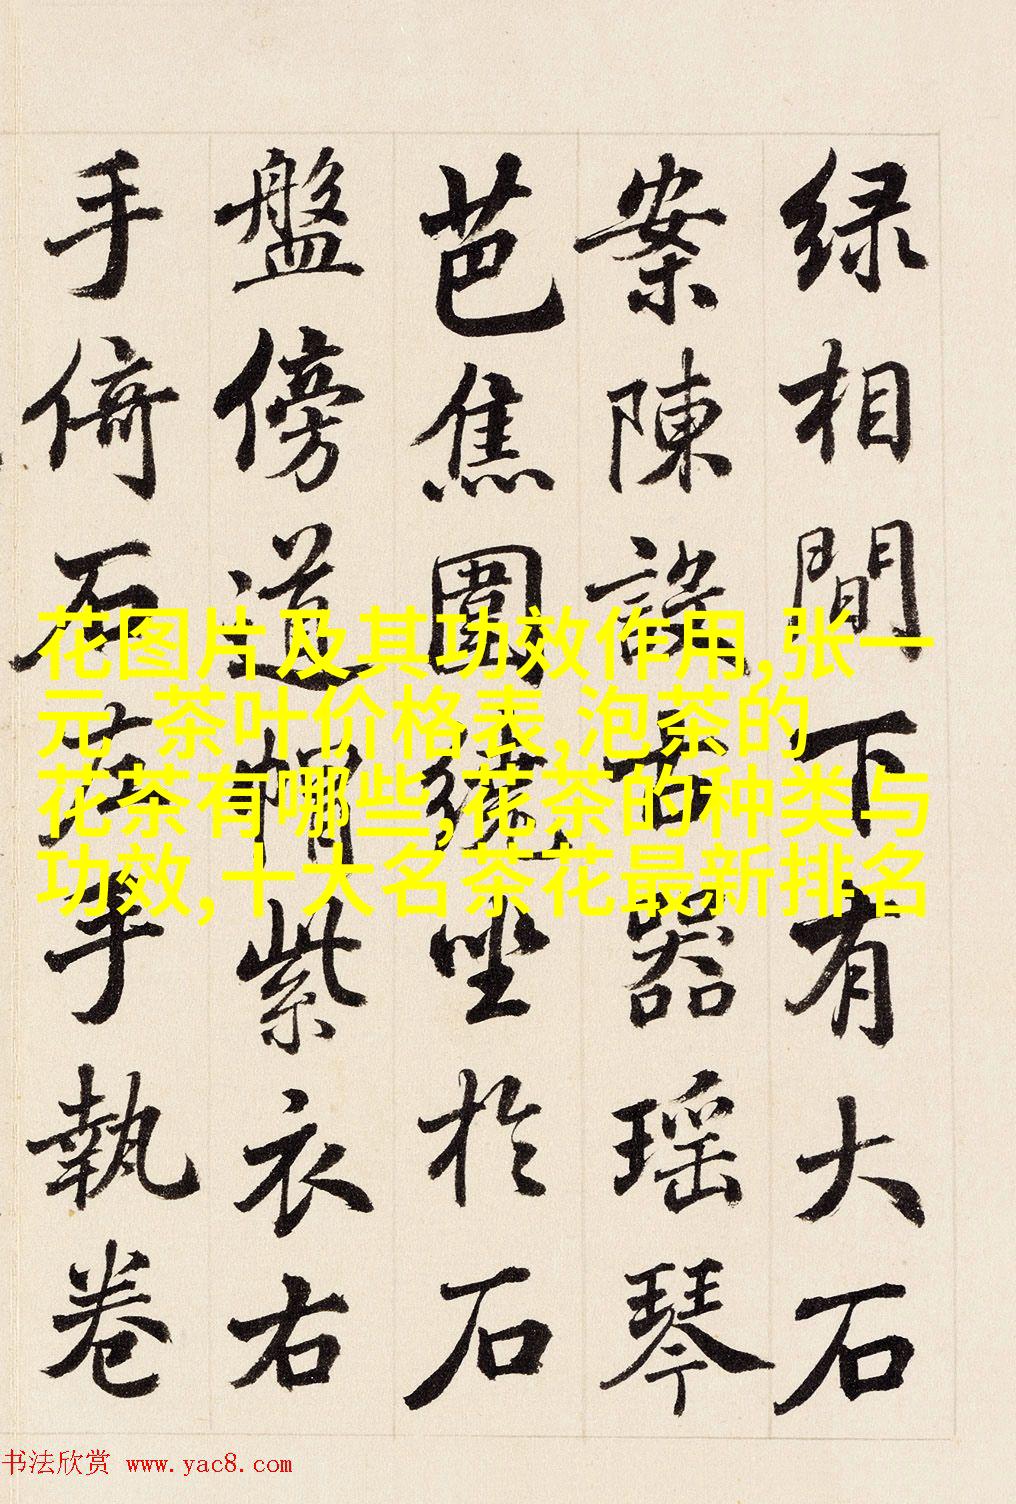 绿相間下有大石
案陳設古器瑶琴
芭焦圍繞坐於石
盤傍道帽紫衣右
手倚石左手執卷
花图片及其功效作用,张一
元 茶叶价格表,泡茶的
花茶有哪些,花茶的种类与
功效,十大名茶花最新排名
书法欣赏 www.yac8.com